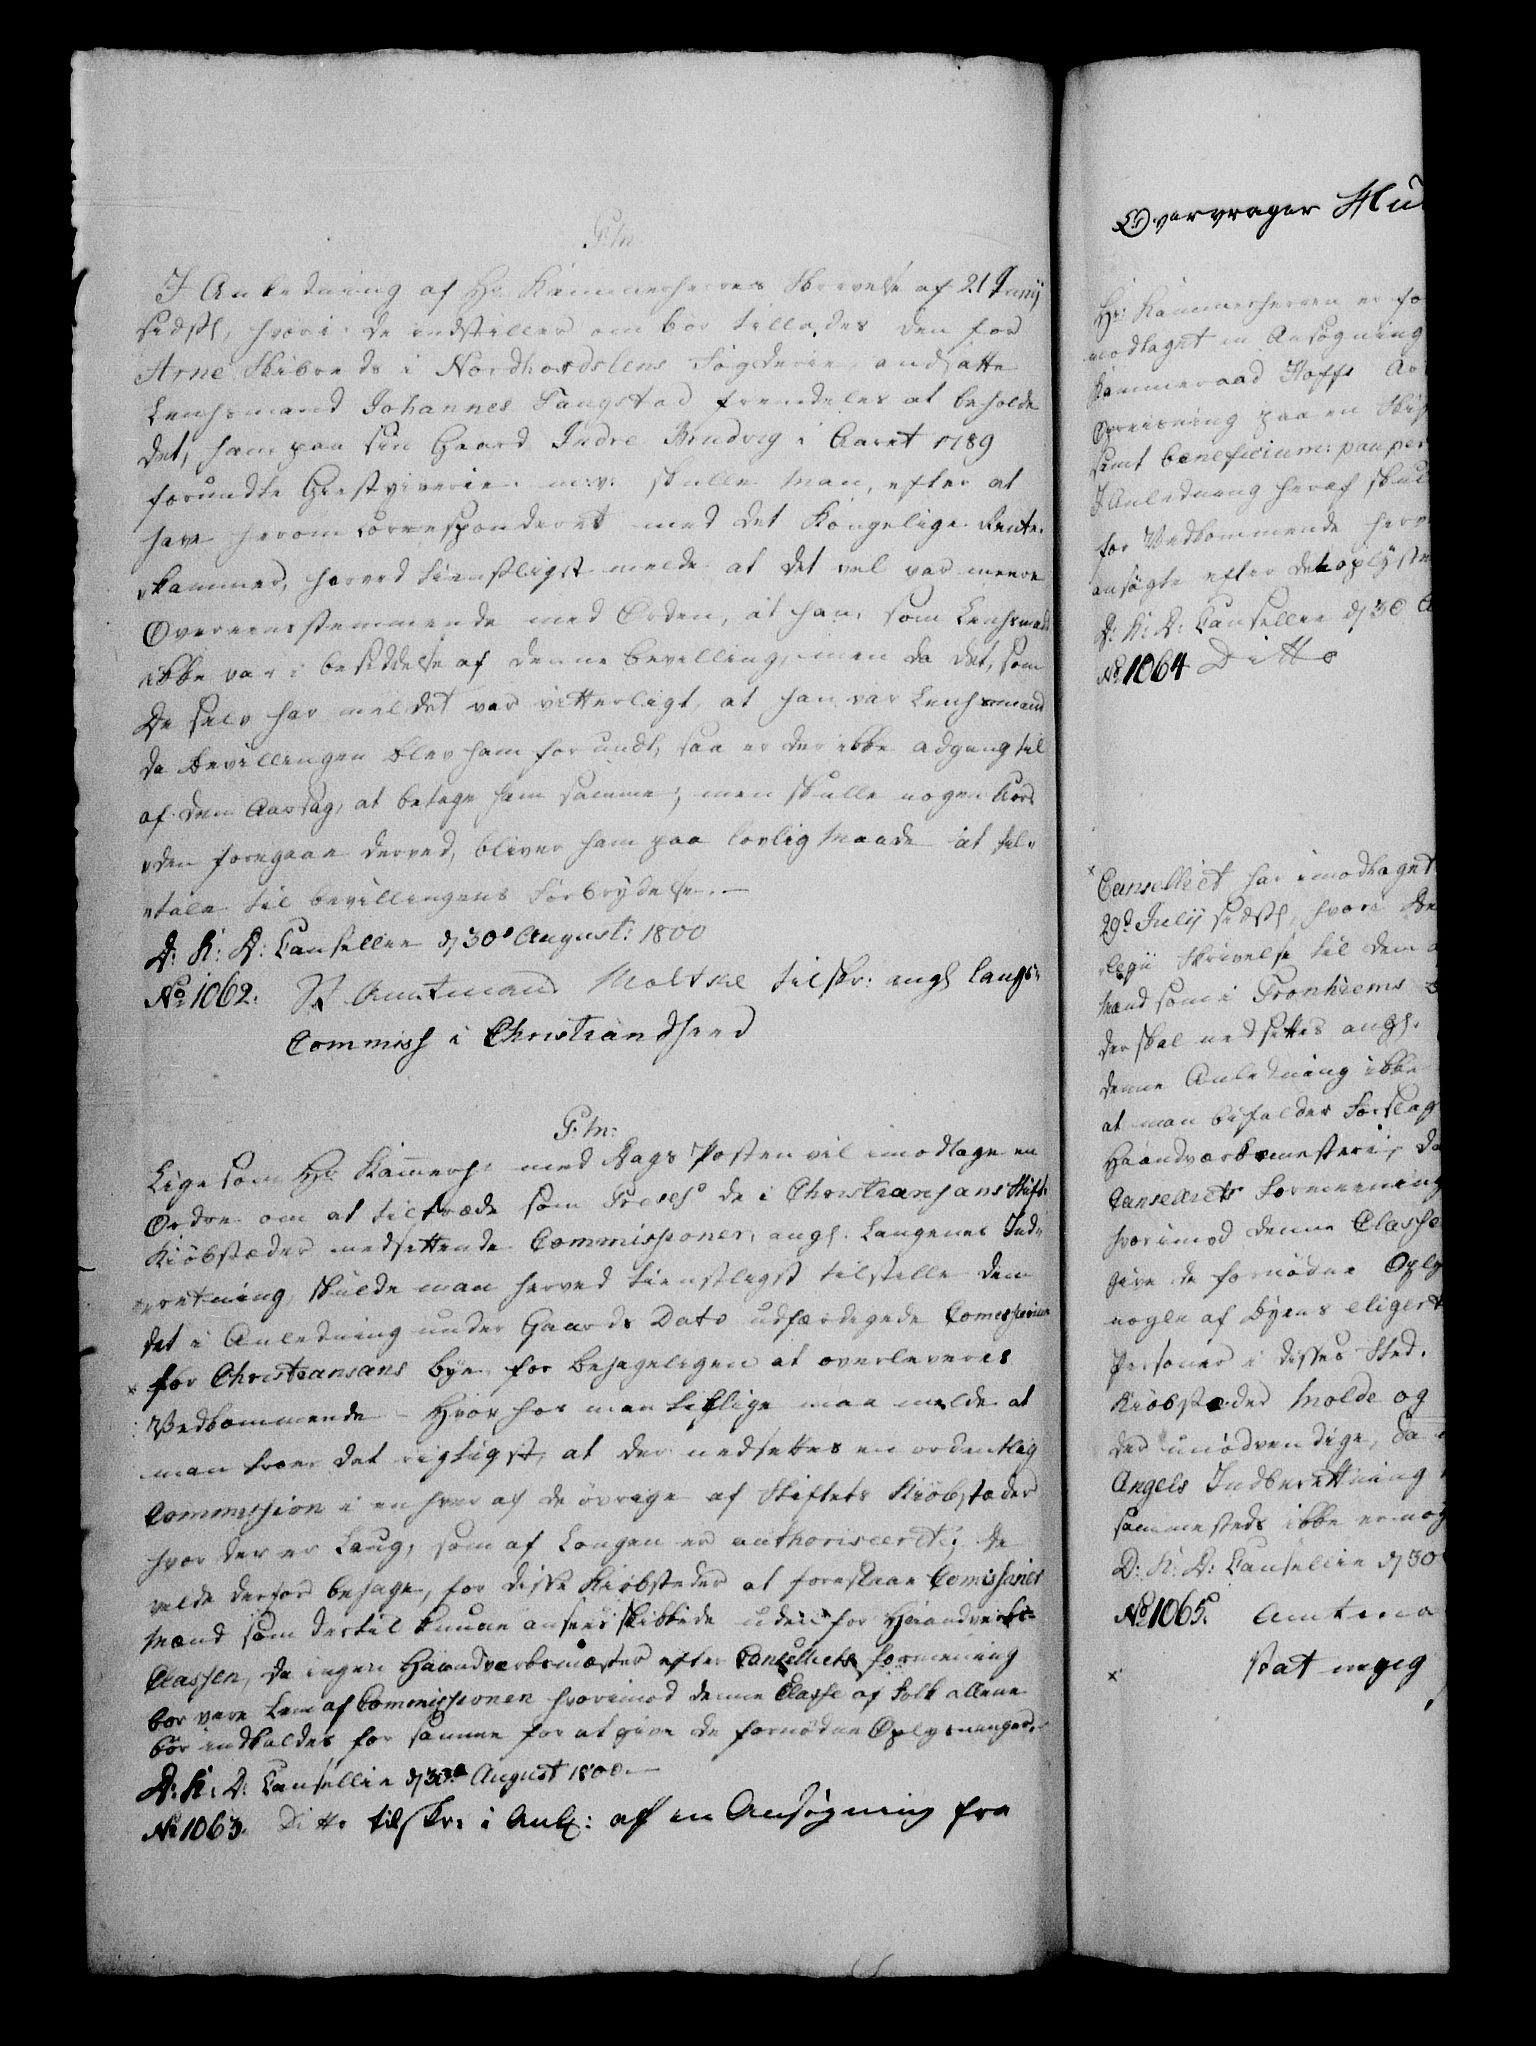 P: M:
I Anledning af Hr: Kammerherres Skrivelse af 21 Junij
sidstl, hvori de indstiller om bør tillades den for
Arne Skibrede i Nordhordslens Fogderie ansatte
Lenhsmand Johannes Tangstad fremdeles at beholde
det, ham paa sin Gaard Indre Brudvig i Aaret 1789
forundte Giestgiverie m: v: skulle Man, efter at
have herom correspondered med det Kongelige Rente-
kammer, herved tienstligst melde at det vel var meere
Overeensstemmende med Orden, at han, som Lenhsmand
ikke var i besiddelse af denne bevilling, men da det, som
De selv har meldet var vitterligt, at han var Lenhsmand
da Bevillingen blev ham forundt, saa er der ikke adgang til
af den Aarsag, at betage ham samme; men skulle nogen Uor-
den foregaae derved, bliver ham paa lovlig Maade at til-
tale til bevillingens Forbrydelse. —
D: K: D: Cancellie d 30d August: 1800
No 1062. St. Amtmand Moltke tilskr: angl Laugs-
Commiss i Christiansand
P: M:
Ligesom Hr: Kammerh: med Dags Posten vil imodtage en
Ordre om at tiltræde som Preses de i Christiansans Stifts
Kiøbstæder nedsettende Commissioner, angl. Laugenes Ind-
retning, skulde man herved tienstligst tilstille dem
det i Anledning under Gaards Dato udfærdigede Commissorium
for Christiansans bye for behageligen at overleveres
Vedkommende – Hvorhos man tillige maa melde at
man troer det rigtigst, at der nedsettes en ordentlig
Commission i enhver af de øvrige af Stiftets Kiøbstæder
hvor der er Laug, som af Longen er authoriseret; De
vilde derfor behage, for disse Kiøbsteder at foreslaae Comissions
Mænd som dertil kunne ansees skikkede uden for Haandverks-
Classen, da ingen Haandværksmester efter Cancelliets formening
bør være Lem af Commissionen hvorimod denne Classe af Folk allene
bør indkaldes for samme for at give de fornødne Oplysninger.
D: K: D: Cancellie d 30d August 1800 —
No 1063. Ditto tilskr: i Anl: af en Ansøgning fra
Overvrager
Hr: Kammerherren er
modtaget en Ansøgning
Kammeraad Hoffs
Opreisning paa en
samt beneficium: pauper
I Anledning heraf skul
for Vedkommende herv
ansøgte efter det oplyste
D: K: D: Cancellie d 30
No 1064 Ditto
Cancelliet har imodtaget
29d Julij sidstl, hvori De
Skrivelse til dem
Mænd som i Tronhiems
der skal nedsettes angl.
denne Anledning ikke
at man bifalder Forslag
Haandværksmesteri, da
Cancelliets Formeening
hvorimod denne Classe
give de fornødne Oply
nogle af byens eligert
Personer i disses Sted.
Kiøbstæder Molde og
der unødvendige, da
Angels Indberettning
sammesteds ikke er nog
D: K: D: Cancellie d 30
No 1065. Amtma